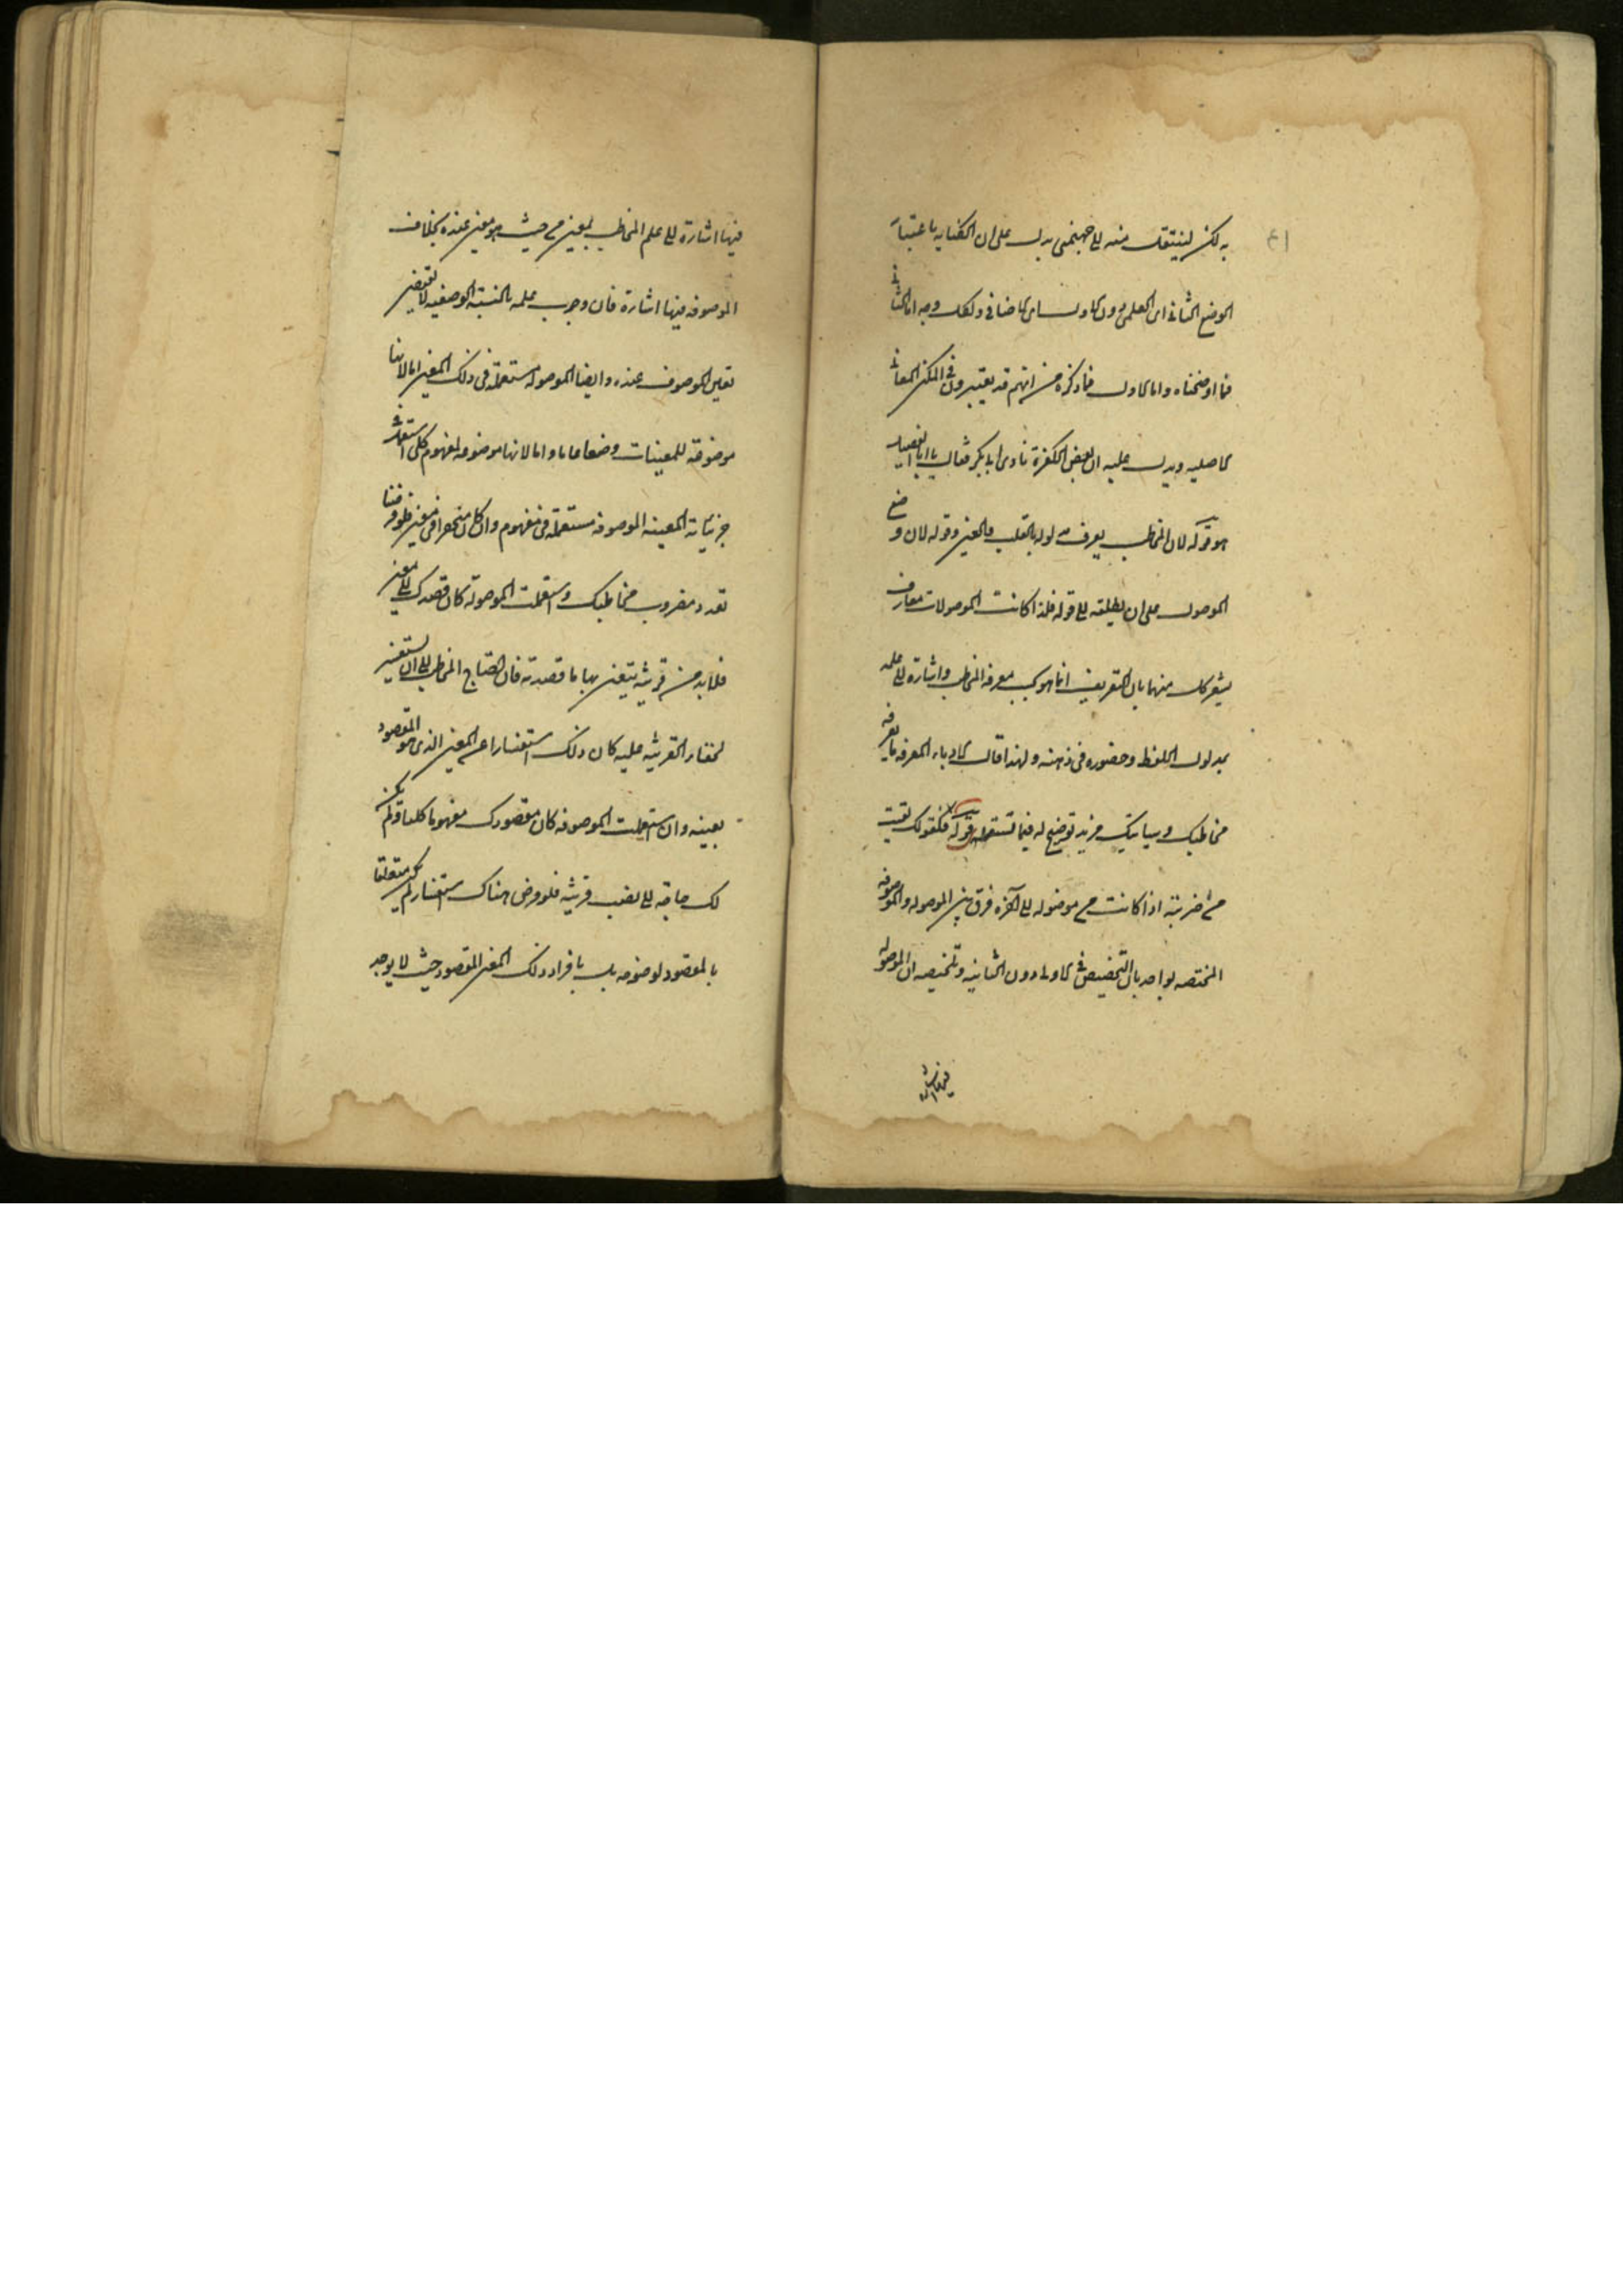 به لكن لينتقل منه الى جهنمى يدل على ان الكناية باعتبار
الوضع الثانى اى العلمى دون الاول اى الاضافى ولكل وجه اما الثانى
فما اوضحناه واما الاول فما ذكره من انهم قد يعتبرون فى الكنى المعانى
الاصلية ويدل عليه ان بعض الكفرة نادى ابا بكر فقال يا ابا الفصيل
هو قوله لان المخاطب يعرف مدلوله بالقلب والعين وقوله لان وضع
الموصول على ان يطلقه الى قوله فلذا كانت الموصولات معارف
يشعر كل منهما بان التعريف انما هو بحسب معرفة المخاطب واشارة الى علمه
بمدلول اللفظ وحضوره فى ذهنه ولهذا قال الادباء المعرفة ما يعرفه
مخاطبك وسيأتيك مزيد توضيح له فيما تستقبله قوله فكقولك لقيت
من ضربته اذا كانت من موصولة الى آخره فرق بين الموصولة والموصوفة
المختصة بواحد بان التخصيص فى الاولى دون الثانية وتلخيصه ان الموصولة
فيها اشارة
فيها اشارة الى علم المخاطب بمعين من حيث هو معين عنده بخلاف
الموصوفة فيها اشارة فان وجب علمه بالنسبة الوصفية لا تقتضى
تعين الموصوف عنده وايضا الموصولة مستعملة فى ذلك المعين اما لانها
موضوعة للمعينات وضعا عاما واما لانها موضوعة لمفهوم كلى استعملت
جزئياته المعينة الموصوفة مستعملة فى مفهوم وان كان منحصرا فى معين فلو فرضنا
تعدد مضروب مخاطبك واستعملت الموصولة كان قصدك الى معين
فلا بد من قرينة يتعين بها ما قصدته فان احتاج المخاطب الى ان يستفسر
لخفاء القرينة عليه كان ذلك استفسارا عن المعين الذى هو المقصود
بعينه وان استعملت الموصوفة كان مقصودك مفهوما كليا ولم يكن
لك حاجة الى نصب قرينة فلو فرض هناك استفسار لم يكن متعلقا
بالمقصود لوضوحه بل بافراد ذلك المعنى المقصود حيث لا يوجد